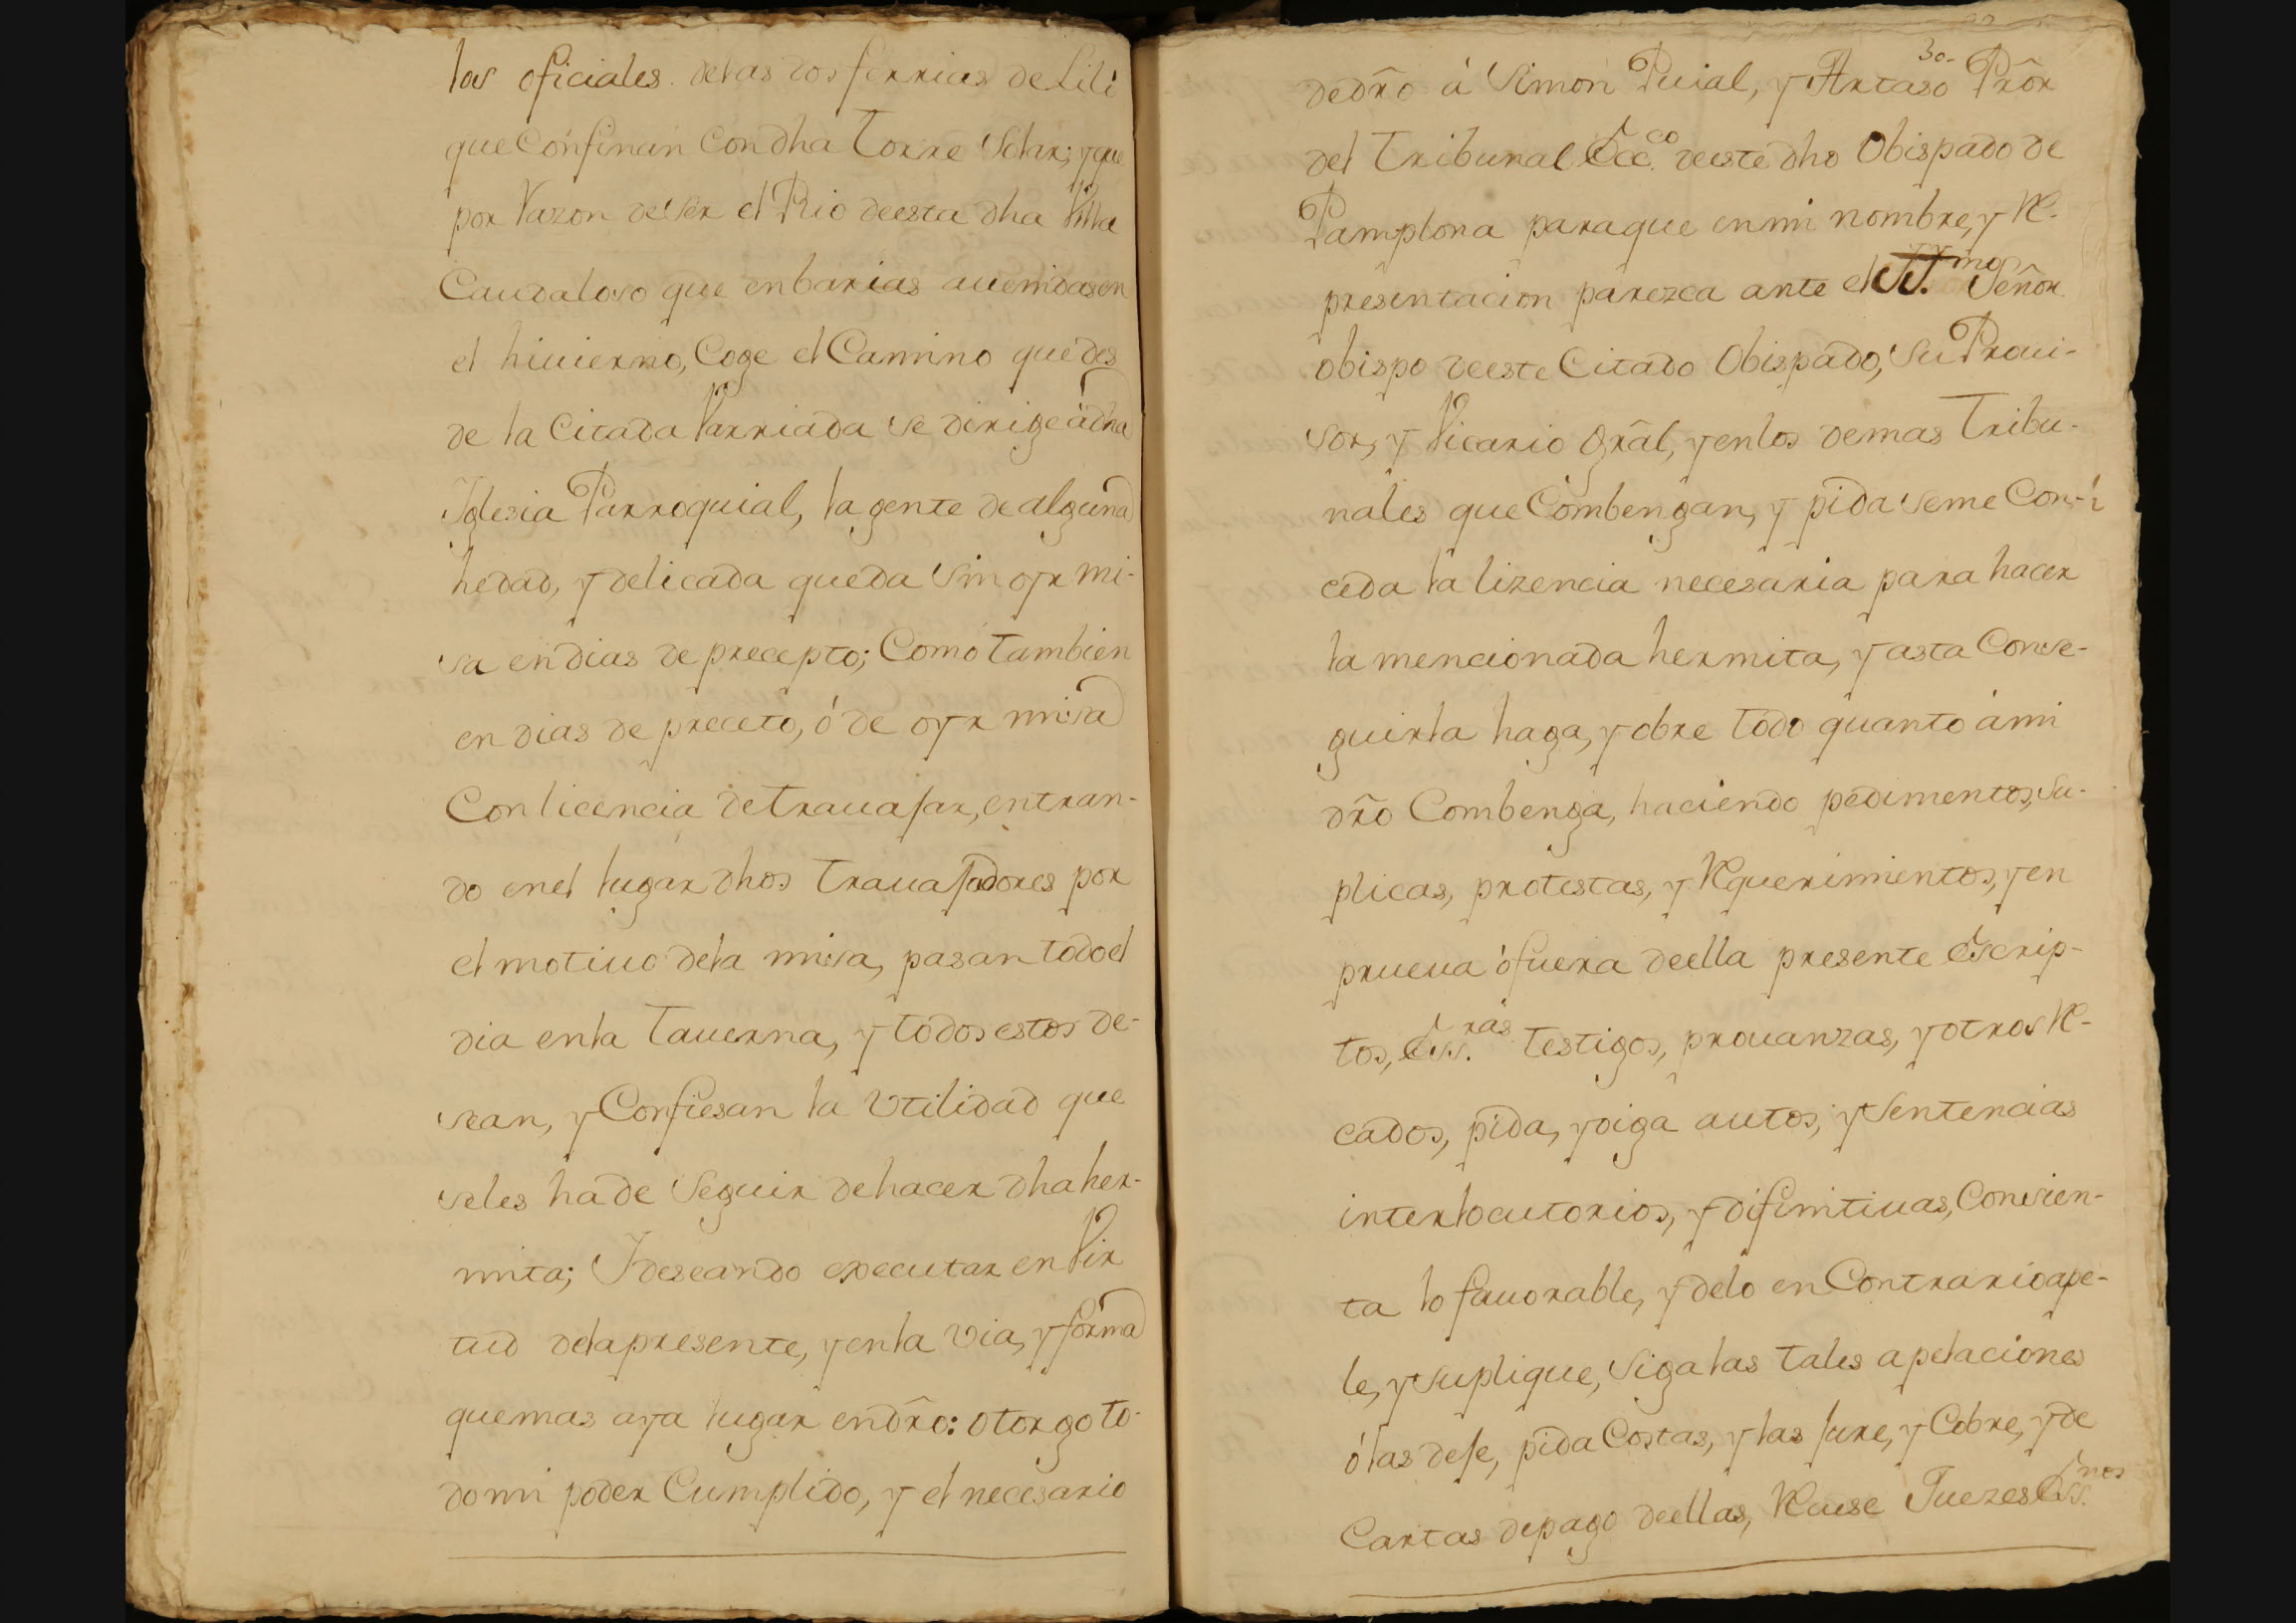 los oficiales. delas dos ferrias de Lili
que Confinan Con dha Torre Solar; y que
por Razon de ser el Rio deesta dha Villa
Caudaloso que en barias auenidas en
el hiuierno, Coge el Camino que des
de la Citada Varriada se dirige à dha
Iglesia Parroquial, la gente de alguna
hedad, y delicada queda sin oyr mi-
sa en dias de precepto; Como tambien
en dias de preceto, ó de oyr misa
Con licencia de trauajar, entran-
do en el lugar dhos trauajadores por
el motiuo dela misa, pasan todo el
dia en la tauerna, y todos estos de-
sean, y Confiesan la Vtilidad que
seles ha de Seguir de hacer dha her-
mita; Y deseando executar en Vir
tud dela presente, y en la via, y forma
que mas aya lugar en dr̃o: otorgo to-
do mi poder Cumplido, y el necesario
30-
de dr̃o á Simon Puial, y Artaso Pr̃or
del Tribunal Ecc.co deeste dho Obispado de
Pamplona paraque en mi nombre, y Re-
presentacion parezca ante el Ill.mo Señor
obispo deeste Citado Obispado, Su Proui-
sor, y Vicario Gr̃al, y en los demas Tribu-
nales que Combengan, y pida seme Con-
ceda la lizencia necesaria para hacer
la mencionada hermita, y asta Conse-
guirla haga, y obre todo quanto à mi
dr̃o Combenga, haciendo pedimentos, su-
plicas, protestas, y Requerimientos, y en
prueua ó fuera deella presente Escrip-
tos, Ess.ras testigos, prouanzas, y otros Re-
cados, pida, y oiga autos, y Sentencias
interlocutorios, y difinitiuas, Consien-
ta lo fauorable, y delo en Contrario ape-
le, y suplique, Siga las tales apelaciones
ó las deje, pida Costas, y las jure, y Cobre, y de
Cartas depago deellas, Recuse Juezes Ess.nos